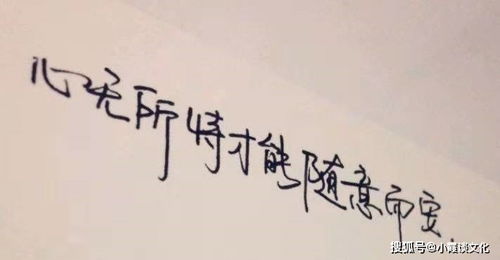 心无所恃才能随意而安.
搜狐号@小谈文化